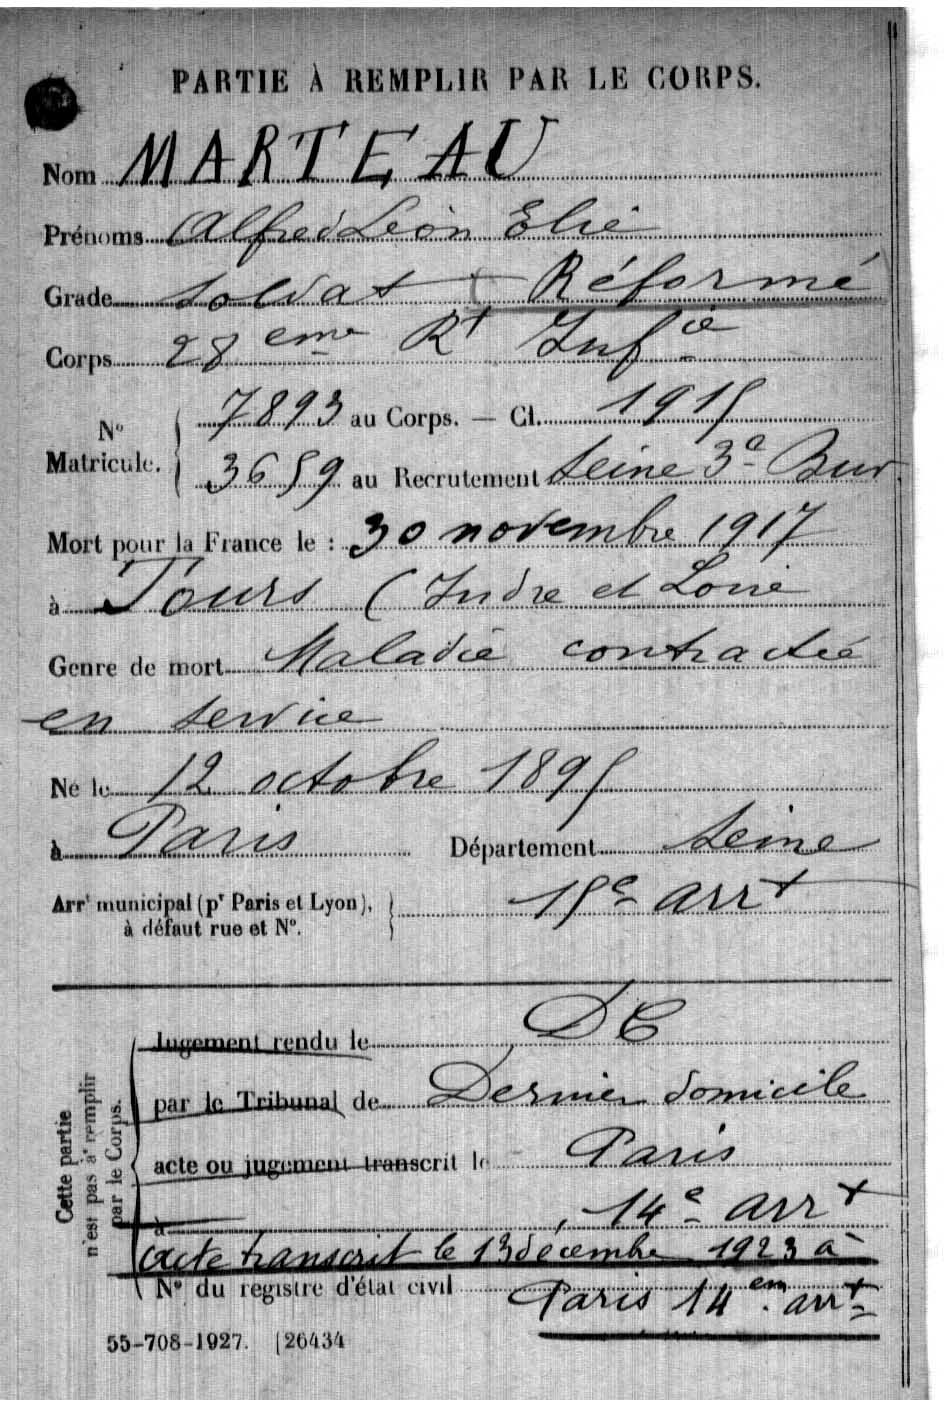 PARTIE À REMPLIR PAR LE CORPS.
Nom MARTEAU
Prénoms Alfred Léon Elie
Grade soldat Réformé
Corps 28 eme Rt Infie
No Matricule. 7893 au Corps. — Cl. 1915
3659 au Recrutement Seine 3e Bur
Mort pour la France le : 30 novembre 1917
à Tours (Indre et Loire
Genre de mort Maladie contractée
en service
Né le 12 octobre 1895
à Paris Département Seine
Arrt municipal (pr Paris et Lyon), à défaut rue et No. 15e arrt
Cette partie n'est pas à remplir par le Corps.
Jugement rendu le DC
par le Tribunal de Dernier domicile
acte ou jugement transcrit le Paris
à 14e arrt
acte transcrit le 13 décembre 1923 à
No du registre d'état civil Paris 14em arrt
55-708-1927. [26434